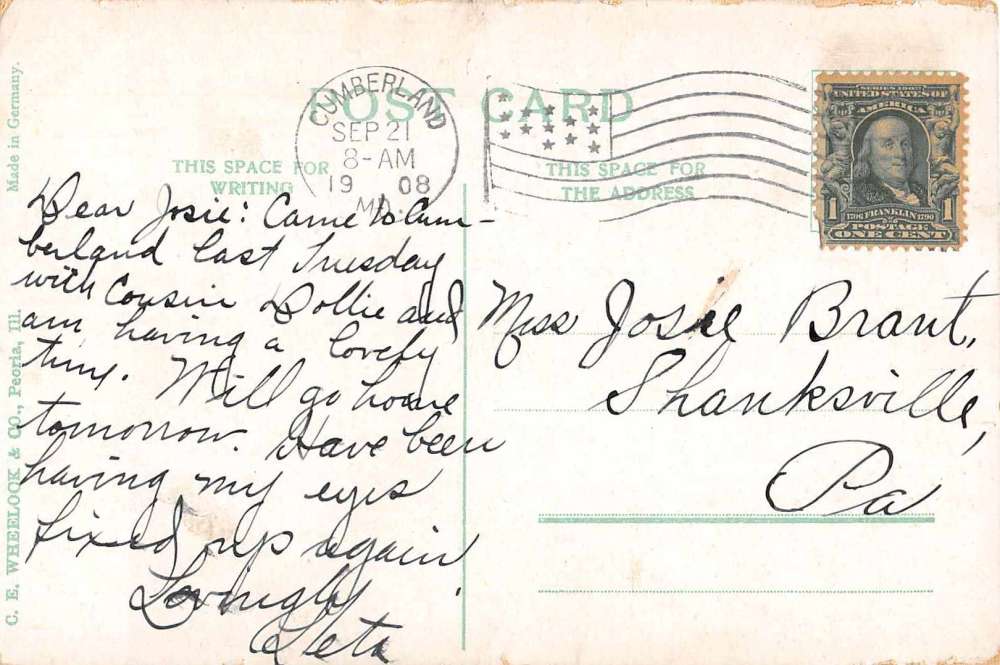 POST CARD
CUMBERLAND
SEP 21
8-AM
19 08
MD.
THIS SPACE FOR
WRITING
THIS SPACE FOR
THE ADDRESS
SERIES 1902
UNITED STATES OF
AMERICA
1706 FRANKLIN 1790
1 POSTAGE 1
ONE CENT
Made in Germany.
C. E. WHEELOCK & CO., Peoria, Ill.
Dear Josie: Came to Cum-
berland last Tuesday
with Cousin Dollie and
am having a lovely
time. Will go home
tomorrow. Have been
having my eyes
fixed up again.
Lovingly
Leta
Miss Josie Brant,
Shanksville,
Pa